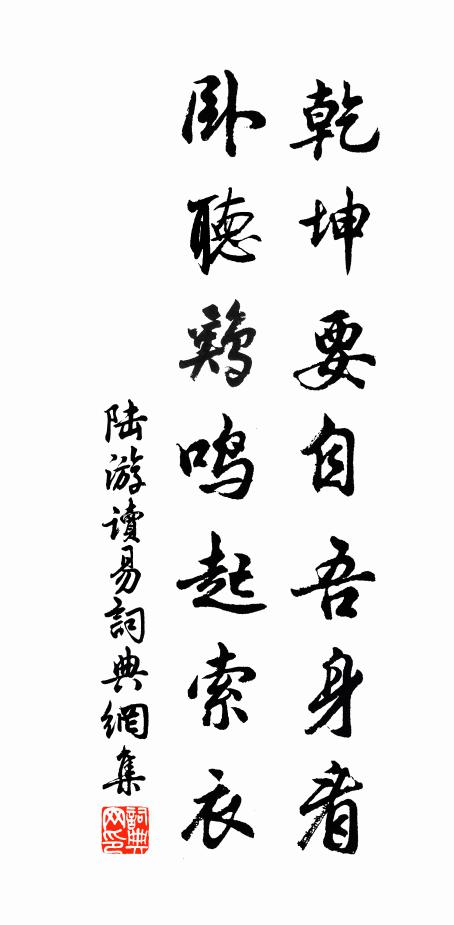 乾坤要自吾身看
卧聽鷄鳴起索衣
陆游讀易詞典網集
詞典網印